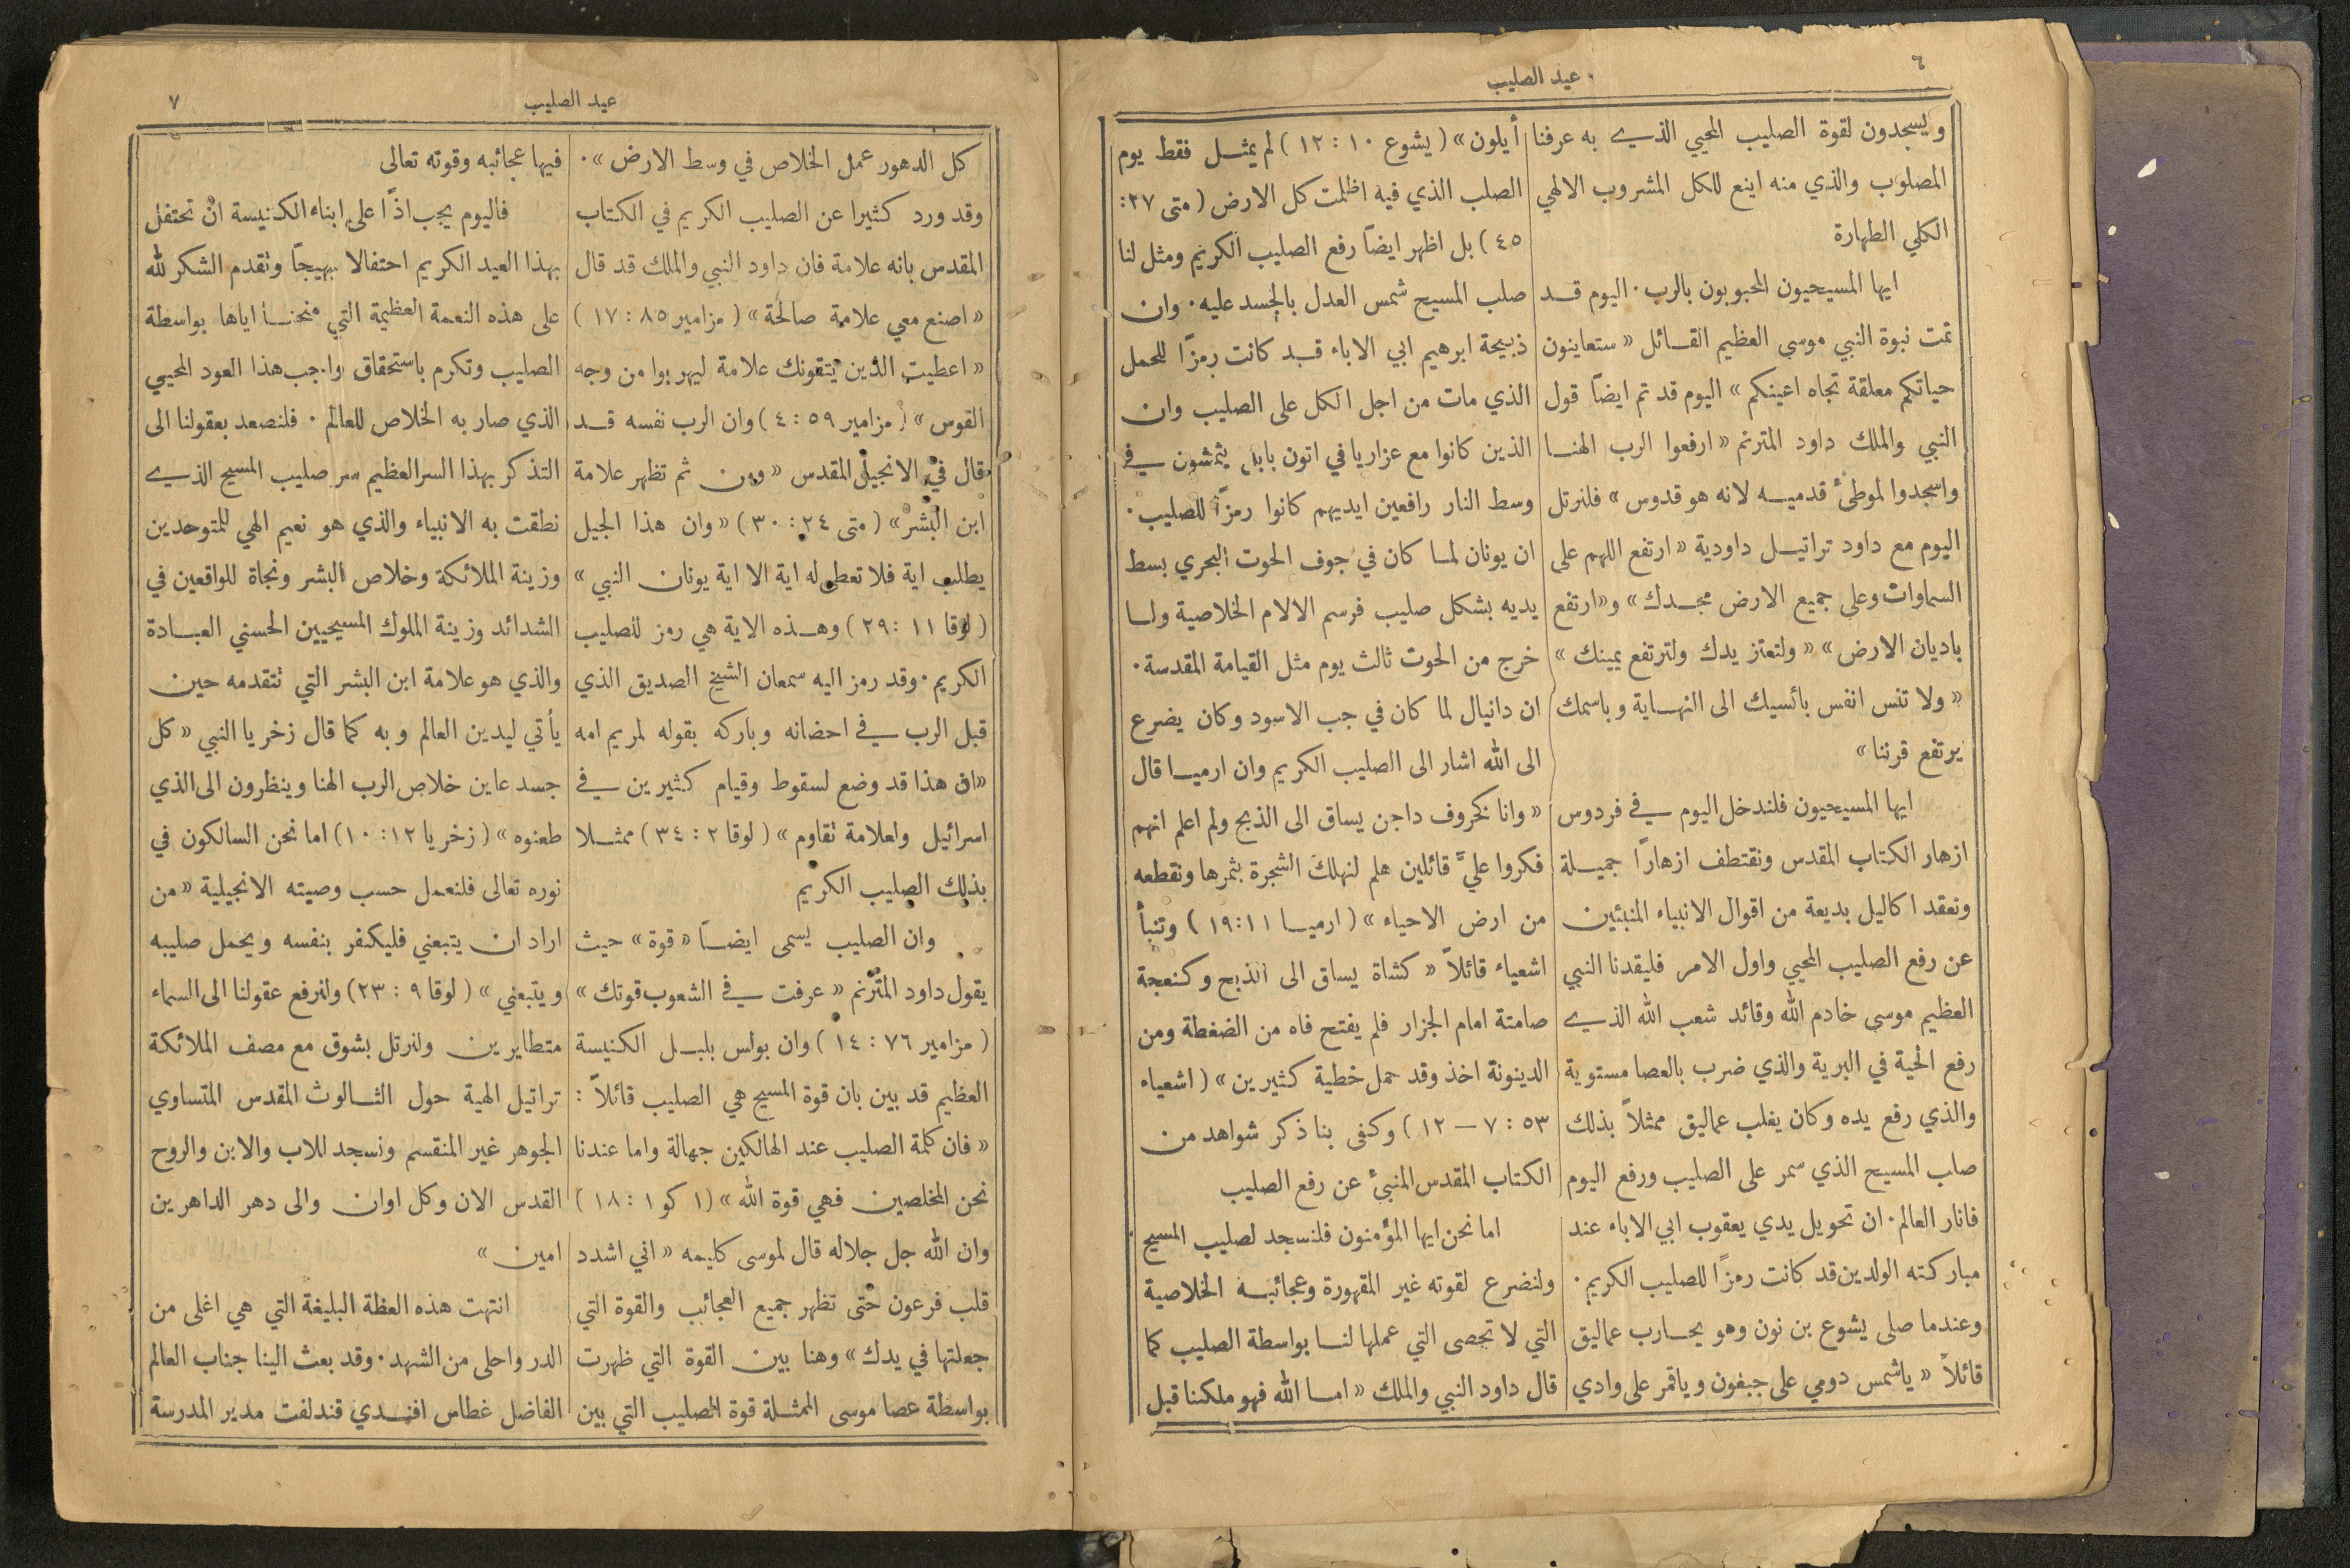 ٦
عيد الصليب
ويسجدون لقوة الصليب المحيي الذي به عرفنا
المصلوب والذي منه اينع للكل المشروب الالهي
الكلي الطهارة
ايها المسيحيون المحبوبون بالرب . اليوم قد
تمت نبوة النبي موسى العظيم القائل « ستعاينون
حياتكم معلقة تجاه اعينكم » اليوم قد تم ايضاً قول
النبي والملك داود المترنم « ارفعوا الرب الهنا
واسجدوا لموطئ قدميه لانه هو قدوس » فلنرتل
اليوم مع داود تراتيل داودية « ارتفع اللهم على
السماوات وعلى جميع الارض مجدك » و« ارتفع
ياديان الارض » « ولتعتز يدك ولترتفع يمينك »
« ولا تنس انفس بائسيك الى النهاية وباسمك
يرتفع قرننا »
ايها المسيحيون فلندخل اليوم في فردوس
ازهار الكتاب المقدس ونقتطف ازهاراً جميلة
ونعقد اكاليل بديعة من اقوال الانبياء المنبئين
عن رفع الصليب المحيي واول الامر فليقدنا النبي
العظيم موسى خادم الله وقائد شعب الله الذي
رفع الحية في البرية والذي ضرب بالعصا مستوية
والذي رفع يده وكان يغلب عماليق ممثلاً بذلك
صلب المسيح الذي سمر على الصليب ورفع اليوم
فانار العالم . ان تحويل يدي يعقوب ابي الاباء عند
مباركته الولدين قد كانت رمزاً للصليب الكريم .
وعندما صلى يشوع بن نون وهو يحارب عماليق
قائلاً « ياشمس دومي على جبعون وياقمر على وادي
أيلون » ( يشوع ١٠ : ١٢ ) لم يمثل فقط يوم
الصلب الذي فيه اظلمت كل الارض ( متى ٢٧ :
٤٥ ) بل اظهر ايضاً رفع الصليب الكريم ومثل لنا
صلب المسيح شمس العدل بالجسد عليه . وان
ذبيحة ابرهيم ابي الاباء قد كانت رمزاً للحمل
الذي مات من اجل الكل على الصليب وان
الذين كانوا مع عزاريا في اتون بابل يتمشون في
وسط النار رافعين ايديهم كانوا رمزاً للصليب .
ان يونان لما كان في جوف الحوت البحري بسط
يديه بشكل صليب فرسم الالام الخلاصية ولما
خرج من الحوت ثالث يوم مثل القيامة المقدسة .
ان دانيال لما كان في جب الاسود وكان يضرع
الى الله اشار الى الصليب الكريم وان ارميا قال
« وانا كخروف داجن يساق الى الذبح ولم اعلم انهم
فكروا عليَّ قائلين هلم لنهلك الشجرة بثمرها ونقطعه
من ارض الاحياء » ( ارميا ١١ : ١٩ ) وتنبأ
اشعياء قائلاً « كشاة يساق الى الذبح وكنعجة
صامتة امام الجزار فلم يفتح فاه من الضغطة ومن
الدينونة اخذ وقد حمل خطية كثيرين » ( اشعياء
٥٣ : ٧ – ١٢ ) وكفى بنا ذكر شواهد من
الكتاب المقدس المنبئ عن رفع الصليب
اما نحن ايها المؤمنون فلنسجد لصليب المسيح
ولنضرع لقوته غير المقهورة وعجائبه الخلاصية
التي لا تحصى التي عملها لنا بواسطة الصليب كما
قال داود النبي والملك « اما الله فهو ملكنا قبل
عيد الصليب
٧
كل الدهور عمل الخلاص في وسط الارض » .
وقد ورد كثيرا عن الصليب الكريم في الكتاب
المقدس بانه علامة فان داود النبي والملك قد قال
« اصنع معي علامة صالحة » ( مزامير ٨٥ : ١٧ )
« اعطيت الذين يتقونك علامة ليهربوا من وجه
القوس » ( مزامير ٥٩ : ٤ ) وان الرب نفسه قد
قال في الانجيل المقدس « ومن ثم تظهر علامة
ابن البشر » ( متى ٢٤ : ٣٠ ) « وان هذا الجيل
يطلب اية فلا تعطى له اية الا اية يونان النبي »
( لوقا ١١ : ٢٩ ) وهذه الاية هي رمز للصليب
الكريم . وقد رمز اليه سمعان الشيخ الصديق الذي
قبل الرب في احضانه وباركه بقوله لمريم امه
« ان هذا قد وضع لسقوط وقيام كثيرين في
اسرائيل ولعلامة تقاوم » ( لوقا ٢ : ٣٤ ) ممثلا
بذلك الصليب الكريم
وان الصليب يسمى ايضاً « قوة » حيث
يقول داود المترنم « عرفت في الشعوب قوتك »
( مزامير ٧٦ : ١٤ ) وان بولس بلبل الكنيسة
العظيم قد بين بان قوة المسيح هي الصليب قائلاً :
« فان كلمة الصليب عند الهالكين جهالة واما عندنا
نحن المخلصين فهي قوة الله » ( ١ كو ١ : ١٨ )
وان الله جل جلاله قال لموسى كليمه « اني اشدد
قلب فرعون حتى تظهر جميع العجائب والقوة التي
جعلتها في يدك » وهنا بين القوة التي ظهرت
بواسطة عصا موسى الممثلة قوة الصليب التي بين
فيها عجائبه وقوته تعالى
فاليوم يجب اذاً على ابناء الكنيسة ان تحتفل
بهذا العيد الكريم احتفالا بهيجاً وتقدم الشكر لله
على هذه النعمة العظيمة التي منحنا اياها بواسطة
الصليب وتكرم باستحقاق واجب هذا العود المحيي
الذي صار به الخلاص للعالم . فلنصعد بعقولنا الى
التذكر بهذا السر العظيم سر صليب المسيح الذي
نطقت به الانبياء والذي هو نعيم الهي للمتوحدين
وزينة الملائكة وخلاص البشر ونجاة للواقعين في
الشدائد وزينة الملوك المسيحيين الحسني العبادة
والذي هو علامة ابن البشر التي تتقدمه حين
يأتي ليدين العالم وبه كما قال زخريا النبي « كل
جسد عاين خلاص الرب الهنا وينظرون الى الذي
طعنوه » ( زخريا ١٢ : ١٠ ) اما نحن السالكون في
نوره تعالى فلنعمل حسب وصيته الانجيلية « من
اراد ان يتبعني فليكفر بنفسه ويحمل صليبه
ويتبعني » ( لوقا ٩ : ٢٣ ) ولنرفع عقولنا الى السماء
متطايرين ولنرتل بشوق مع مصف الملائكة
تراتيل الهية حول الثالوث المقدس المتساوي
الجوهر غير المنقسم ونسجد للاب والابن والروح
القدس الان وكل اوان والى دهر الداهرين
امين »
انتهت هذه العظة البليغة التي هي اغلى من
الدر واحلى من الشهد . وقد بعث الينا جناب العالم
الفاضل غطاس افندي قندلفت مدير المدرسة